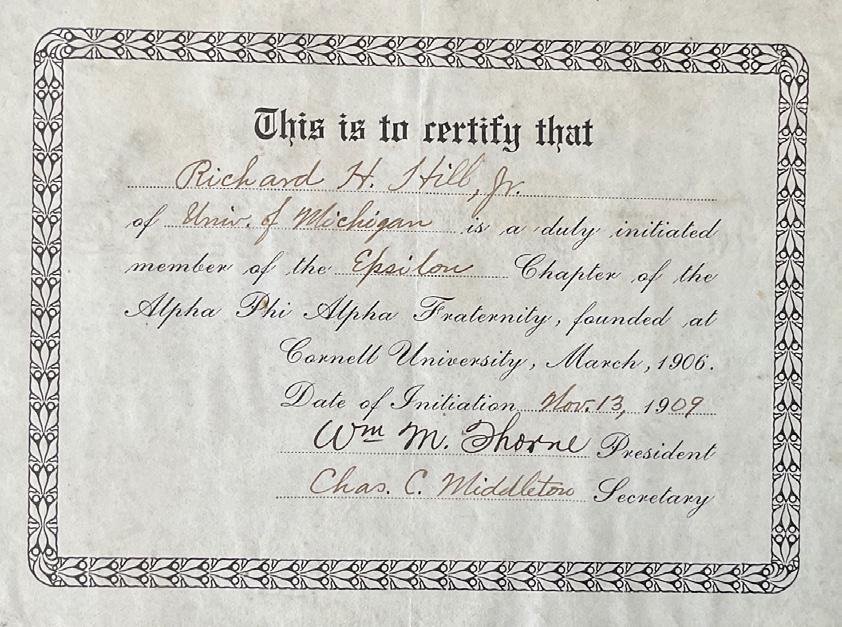 This is to certify that
Richard H. Hill, Jr.
of Univ. of Michigan is a duly initiated
member of the Epsilon Chapter of the
Alpha Phi Alpha Fraternity, founded at
Cornell University, March, 1906.
Date of Initiation Nov. 13, 1909
Wm M. Thorne President
Chas. C. Middleton Secretary